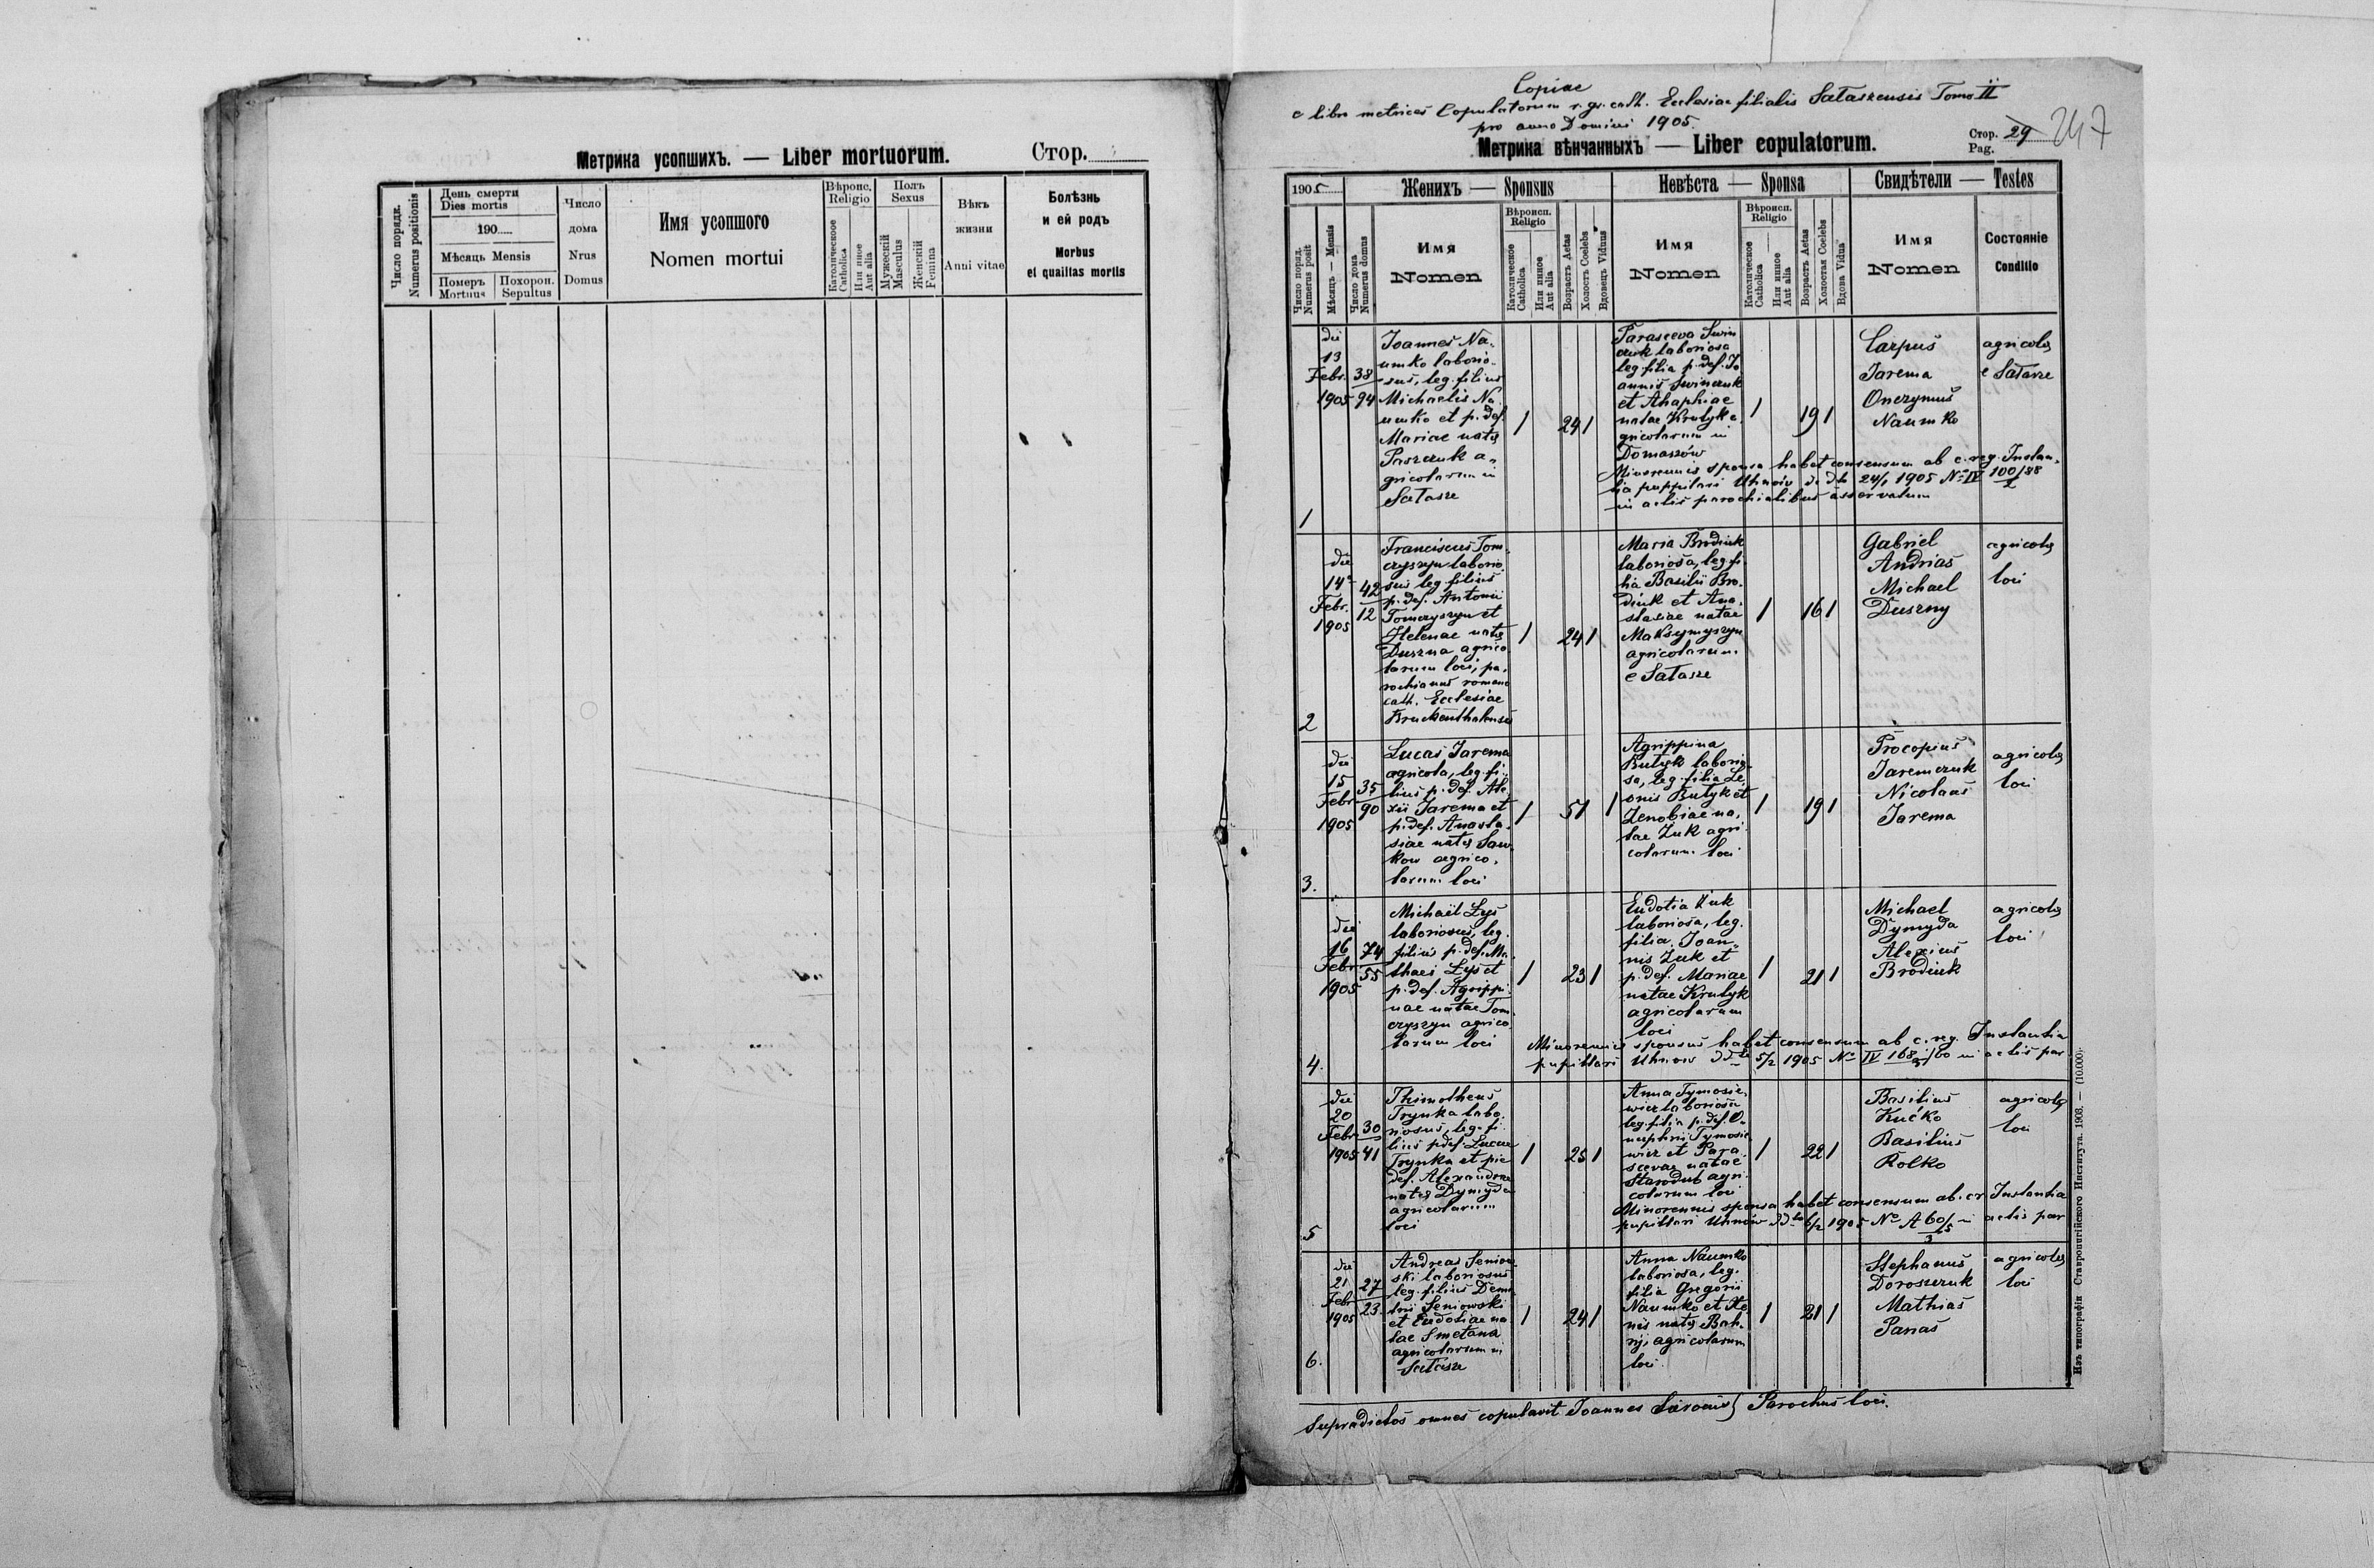 Метрика усопшихъ. — Liber mortuorum. Стор.
Число порядк.
Numerus positionis
День смерти
Dies mortis
190
Мѣсяць Mensis
Померъ
Mortuus
Похорон.
Sepultus
Число
дома
Nrus
Domus
Имя усопшого
Nomen mortui
Вѣроис.
Religio
Католическоое
Catholica
Или иное
Aut alia
Полъ
Sexus
Мужескій
Masculus
Женскій
Femina
Вѣкъ
жизни
Anni vitae
Болѣзнь
и ей родъ
Morbus
et qualitas mortis
Copiae
e libro metrices Copulatorum r. gr. cath. Ecclesiae filialis Sataszensis Tomo II
pro anno Domini 1905.
Метрика вѣнчанныхъ — Liber copulatorum.
Стор.
Pag.
29
247
1905
Женихъ — Sponsus
Невѣста — Sponsa
Свидѣтели — Testes
Число поряд.
Numerus posit
Мѣсяць — Mensis
Число дома
Numerus domus
Имя
Nomen
Вѣроисп.
Religio
Католическое
Catholica
Или иное
Aut alia
Возрастъ Aetas
Холостъ Coelebs
Вдовецъ Viduus
Имя
Nomen
Вѣроисп.
Religio
Католическое
Catholica
Или инное
Aut alia
Возрастъ Aetas
Холостая Coelebs
Вдова Vidua
Имя
Nomen
Состояніе
Conditio
1
die
13
Febr.
1905
38
94
Joannes Na-
umko laborio-
sus, leg. filius
Michaelis Na
umko et p. def.
Mariae natae
Paszczuk a-
gricolarum in
Satasze
1 24 1
Parasceva Swin
czuk laboriosa
leg. filia p. def. Jo
annis Swinczuk
et Ahaphiae
natae Krutyk a
gricolarum in
Domaszów
1 19 1
Carpus
Jarema
Onezymus
Naumko
agricolae
e Satasze
Minorennis sponsa habet consensum ab c. reg. Instan-
tia puppilari Uhnow d. dto 24/1 1905 No IV 100/88
in actis parochialibus asservatum
2
die
14
Febr.
1905
42
12
Franciscus Tom-
czyszyn laborio
sus leg. filius
p. def. Antonii
Tomczyszyn et
Helenae natae
Duszna agrico
larum loci, pa-
rochianus romano
cath. Ecclesiae
Bruckenthalensis
1 24 1
Maria Brodiuk
laboriosa, leg. fi-
lia Basilii Bro-
diuk et Ana-
stasiae natae
Maksymyszyn
agricolarum
e Satasze
1 16 1
Gabriel
Andrias
Michael
Duszny
agricolae
loci
3.
die
15
Febr
1905
35
90
Lucas Jarema
agricola, leg. fi-
lius p. def. Ale
xii Jarema et
p. def. Anasta-
siae natae Saw
kow agrico-
larum loci
1 51 1
Agrippina
Butyk laborio-
sa, leg. filia Le
onis Butyk et
Zenobiae na-
tae Zuk agri-
colarum loci
1 19 1
Procopius
Jaremczuk
Nicolaus
Jarema
agricolae
loci
4.
die
16
Febr
1905
74
55
Michaël Lys
laboriosus, leg.
filius p. def. Ma-
thaei Lys et
p. def. Agrippi-
nae natae Tom
czyszyn agrico
larum loci
1 23 1
Eudotia Zuk
laboriosa, leg.
filia Joan-
nis Zuk et
p. def. Mariae
natae Krutyk
agricolarum
loci
1 21 1
Michael
Dymyda
Alexius
Brodiuk
agricolae
loci
Minorennis sponsus habet consensum ab c. reg. Instantia
pupillari Uhnow ddto 5/2 1905 No IV 168/60 in actis par
5
die
20
Febr
1905
30
41
Thimotheus
Trynka labo-
riosus, leg. fi-
lius p def Lucae
Trynka et pie
def. Alexandrae
natae Dymyda
agricolarum
loci
1 25 1
Anna Tymosie-
wicz laboriosa
leg. filia p. def. O-
nuphrii Tymosie
wicz et Para-
scevae natae
Starodub agri-
colarum loci
1 22 1
Basilius
Kućko
Basilius
Rolko
agricolae
loci
Minorennis sponsa habet consensum ab. cr Instantia
pupillari Uhnów ddto 6/2 1905 No A 60/5 in actis par
3
6.
die
21
Febr
1905
27
23
Andreas Seniow-
ski laboriosus
leg. filius Deme
trii Seniowski
et Eudoxiae na
tae Smetana
agricolarum in
Satasze
1 24 1
Anna Naumko
laboriosa, leg.
filia Gregorii
Naumko et Xe
nis natae Bah-
rij, agricolarum
loci
1 21 1
Stephanus
Doroszczuk
Mathias
Panas
agricolae
loci
Supradictos omnes copulavit Joannes Parochus loci.
Изъ типографіи Ставропигійского Института. 1903. — (10.000).